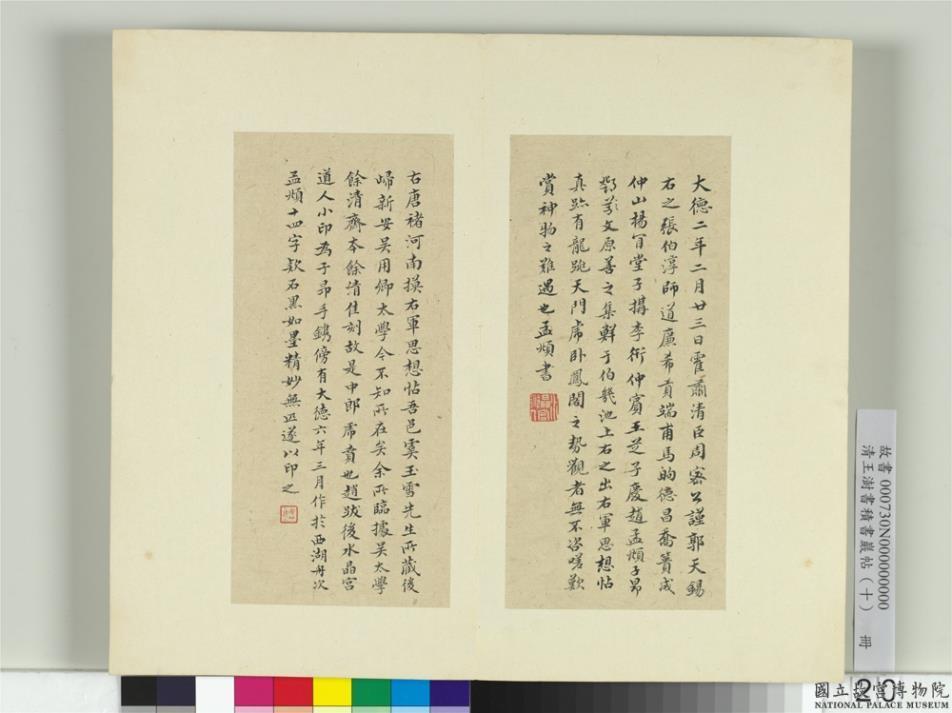 大德二年二月廿三日霍肅清臣周密公謹郭天錫
右之張伯淳師道廉希貢端甫馬昫德昌喬簣成
仲山楊肯堂子構李衎仲賓王芝子慶趙孟頫子昂
鄧文原善之集鮮于伯幾池上右之出右軍思想帖
真跡有龍跳天門虎臥鳳閣之勢觀者無不咨嗟歎
賞神物之難遇也孟頫書
右唐褚河南摸右軍思想帖吾邑虞玉雪先生所藏後
歸新安吳用卿太學今不知所在矣余所臨據吳太學
餘清齋本餘清佳刻故是中郎虎賁也趙跋後水晶宮
道人小印為子昂手鐫傍有大德六年三月作於西湖舟次
孟頫十四字款石黑如墨精妙無匹遂以印之
故書000730N000000000
清王澍書積書巖帖(十) 冊
20
國立故宮博物院
NATIONAL PALACE MUSEUM